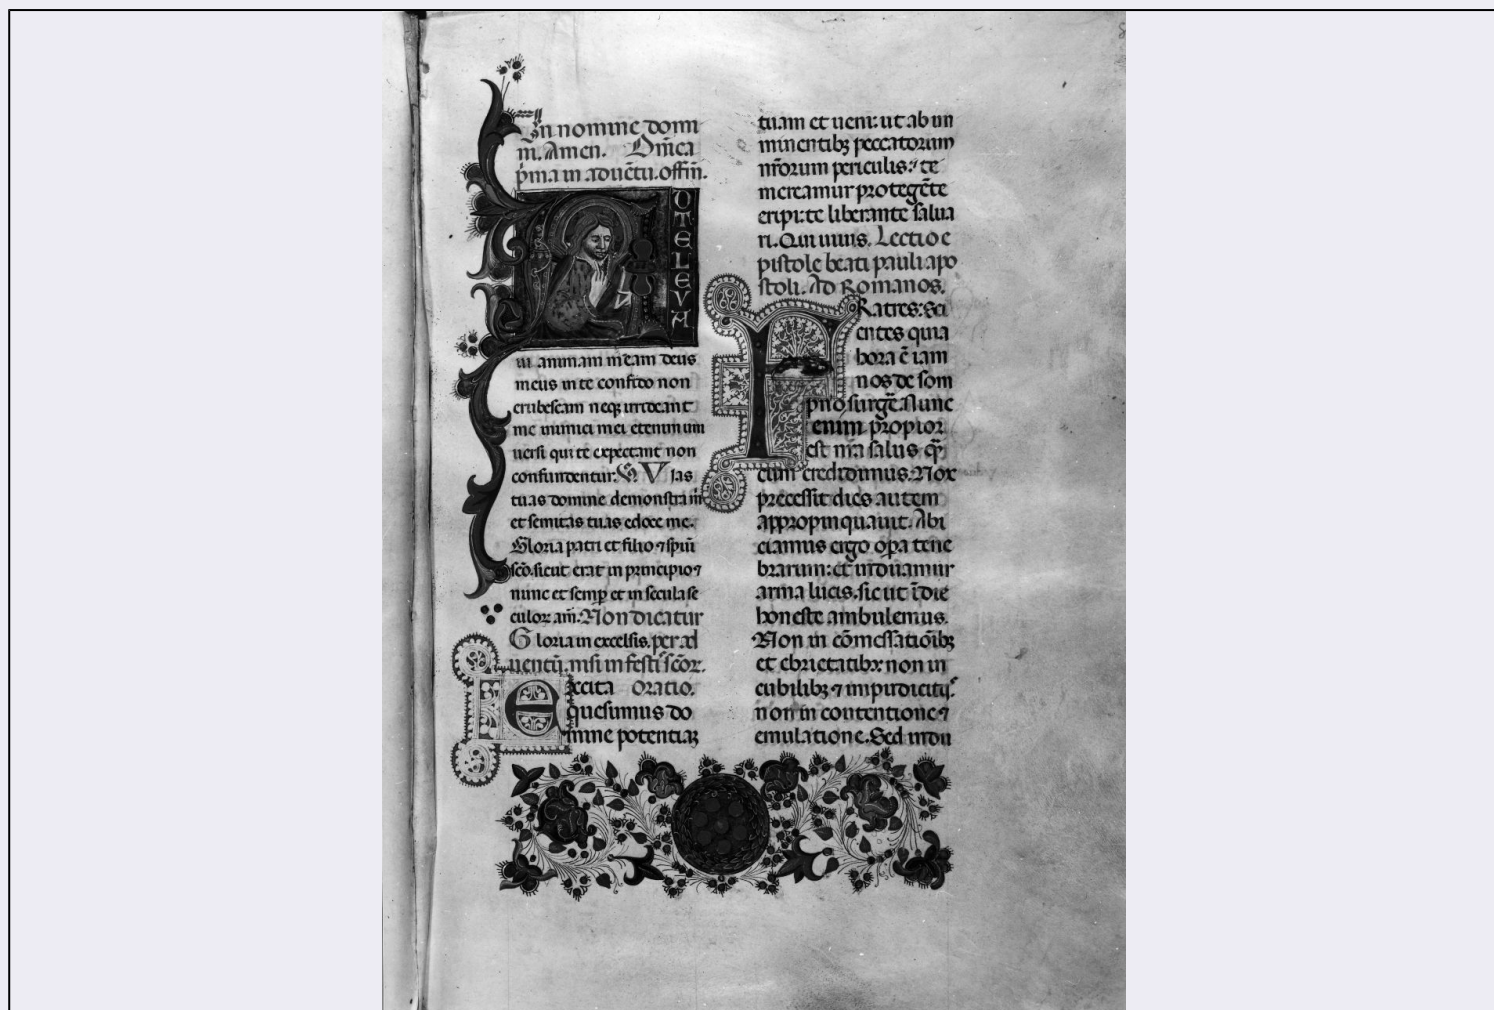 In nomine domi
ni. Amen. Dñica
p̃ma in aduẽtu. offm̃.
A
D
TE
LE
VA
ui animam meam deus
meus in te confido non
erubescam neq; irrideant
me inimici mei etenim um
uersi qui te expectant non
confundentur. V Vias
tuas domine demonstra m̃
et semitas tuas edoce me.
Gloria patri et filio ⁊ spiũ
scõ. sicut erat in principio ⁊
nunc et semp̱ et in secula se
culoꝝ am̃. Non dicatur
Gloria in excelsis. per ad
uentũ. nisi in festi᷒ scõꝝ.
Excita Oratio.
quesumus do
mine potentiaꝫ
tuam et ueni: ut ab im
minentibꝫ peccatorum
nr̃orum periculis: te
mereamur protegẽte
eripi: te liberante salua
ri. Qui uiuis. Lectio e
pistole beati pauli apo
stoli. Ad Romanos.
FRatres: Sci
entes quia
hora ẽ iam
nos de som
pno surgẽ. Nunc
enim propior
est nr̃a salus q̃
cum credidimus. Nox
precessit dies autem
appropinquauit. Abi
ciamus ergo oꝑa tene
brarum: et induamur
arma lucis. sic ut ĩ die
honeste ambulemus.
Non in cõmessatiõibꝫ
et ebrietatibꝫ non in
cubilibꝫ ⁊ impudicitijs
non in contentione ⁊
emulatione. Sed indu